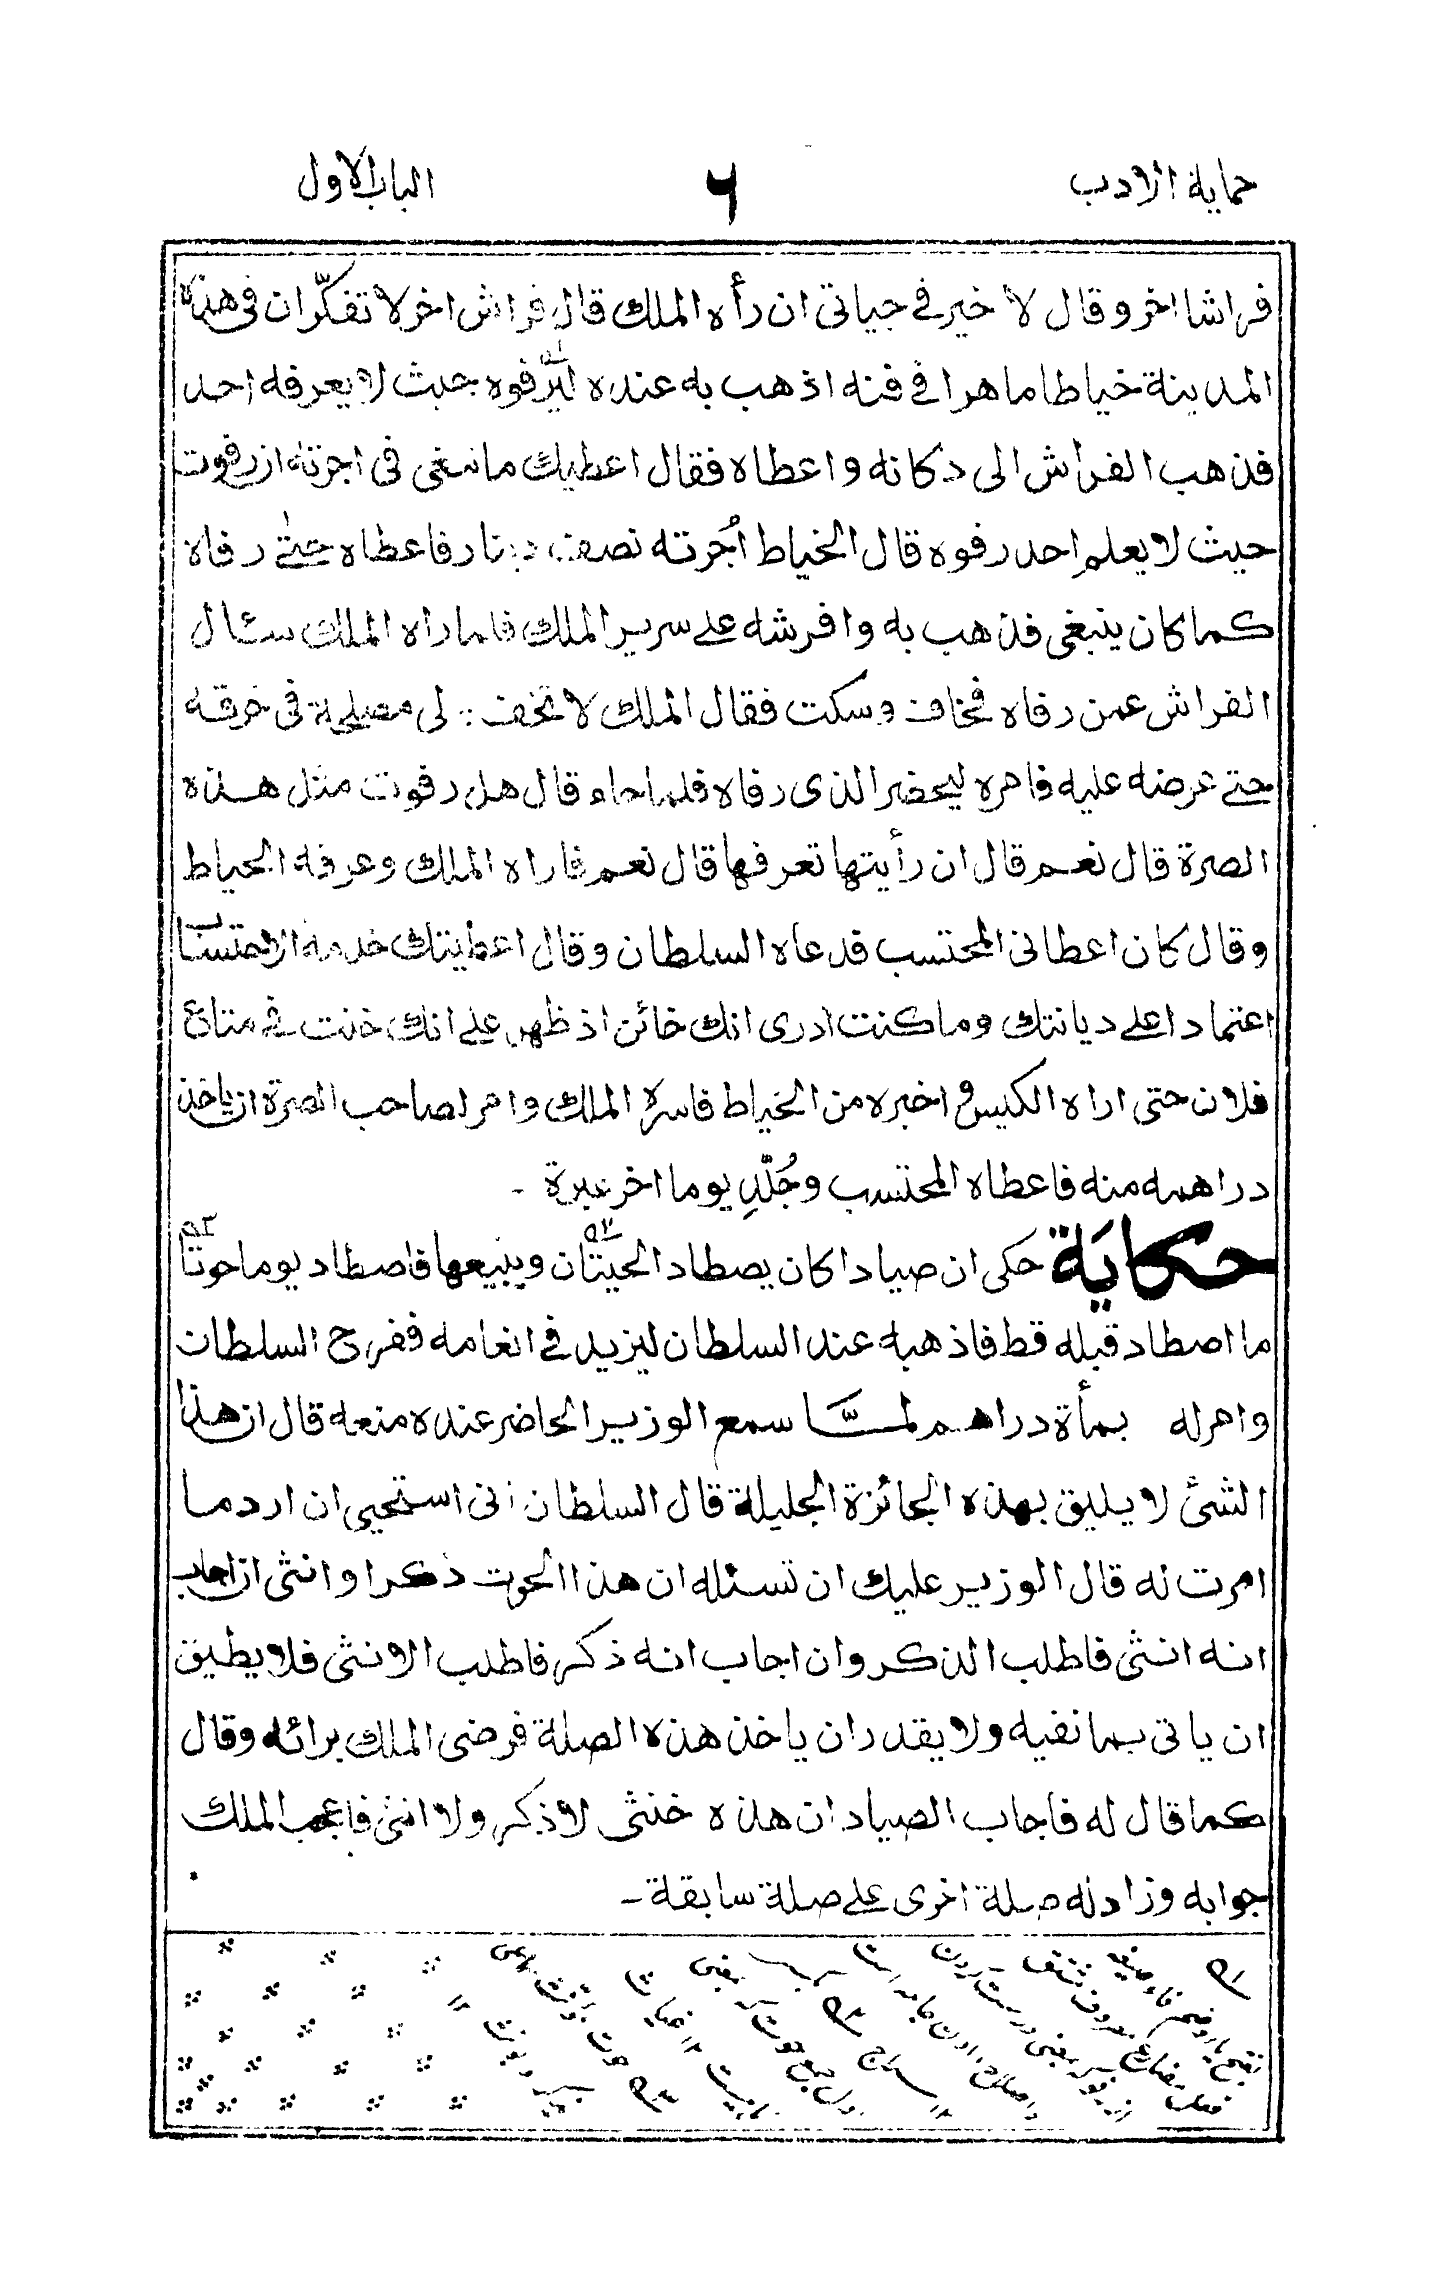 حماية الادب ٦ الباب الاول
فراشا اخر وقال لا خير في حياتى ان رأه الملك قال فراش اخر لا تفكّر ان فى هذه
المدينة خياطا ماهرا في فنه اذهب به عنده ليرفوه حيث لا يعرفه احد
فذهب الفراش الى دكانه واعطاه فقال اعطيك ما تبغى فى اجرته ان رفوت
حيث لا يعلم احد رفوه قال الخياط اُجرته نصف دينار فاعطاه حتٰے رفاه
كما كان ينبغى فذهب به وافرشه علے سرير الملك فلما راه الملك سئال
الفراش عمن رفاه فخاف وسكت فقال الملك لا تخف لى مصلحة فى خرقه
حتے عرضه عليه فامره ليحضر الذى رفاه فلما جاء قال هل رفوت مثل هذه
الصرة قال نعم قال ان رأيتها تعرفها قال نعم فاراه الملك وعرفه الخياط
وقال كان اعطانى المحتسب فدعاه السلطان وقال اعطيتك خدمة الاحتساب
اعتمادا علے ديانتك وما كنت ادرى انك خائن اذ ظهر علے انك خنت في متاع
فلان حتى اراه الكيس و اخبره من الخياط فاسره الملك وامر لصاحب الصرة ان ياخذ
دراهمه منه فاعطاه المحتسب وجُلّدِ يوما اخر عبرة -
حكايَة حكى ان صيادا كان يصطاد الحيتان ويبيعها فاصطاد يوما حوتا
ما اصطاد قبله قط فاذهبه عند السلطان ليزيد في انعامه ففرح السلطان
وامر له بمأة دراهم لمّا سمع الوزير الحاضر عنده منعه قال ان هذا
الشئ لا يليق بهذه الجائزة الجليلة قال السلطان انى استحيى ان ارد ما
امرت له قال الوزير عليك ان تسئله ان هذا الحوت ذكر او انثى ان اجاب
انه انثى فاطلب الذكر وان اجاب انه ذكر فاطلب الانثى فلا يطيق
ان ياتى بما نفيه ولا يقدر ان ياخذ هذه الصلة فرضى الملك برائه وقال
كما قال له فاجاب الصياد ان هذه خنثى لا ذكر ولا انثى فاعجب الملك
جوابه وزاد له صلة اخرى علے صلة سابقة -